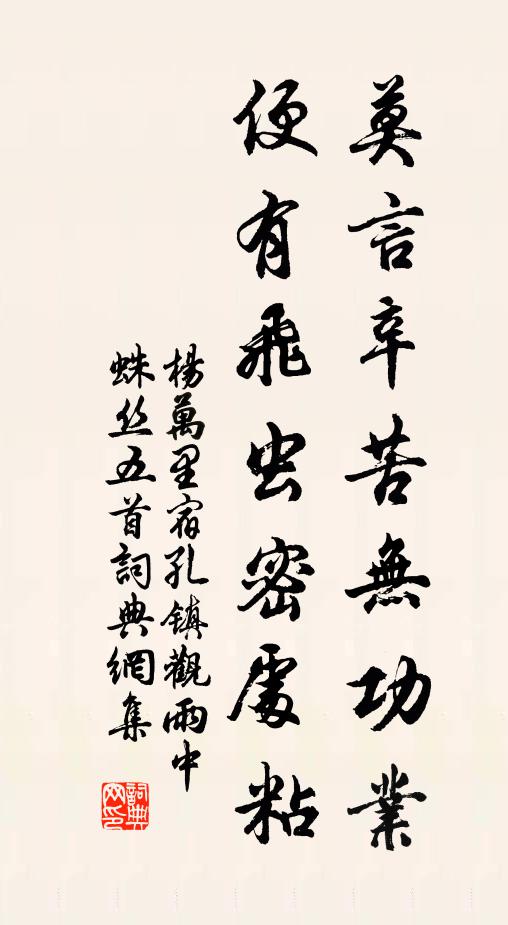 莫言辛苦無功業
便有飛虫密處粘
楊萬里宿孔镇觀雨中
蛛丝五首詞典網集
詞典网印